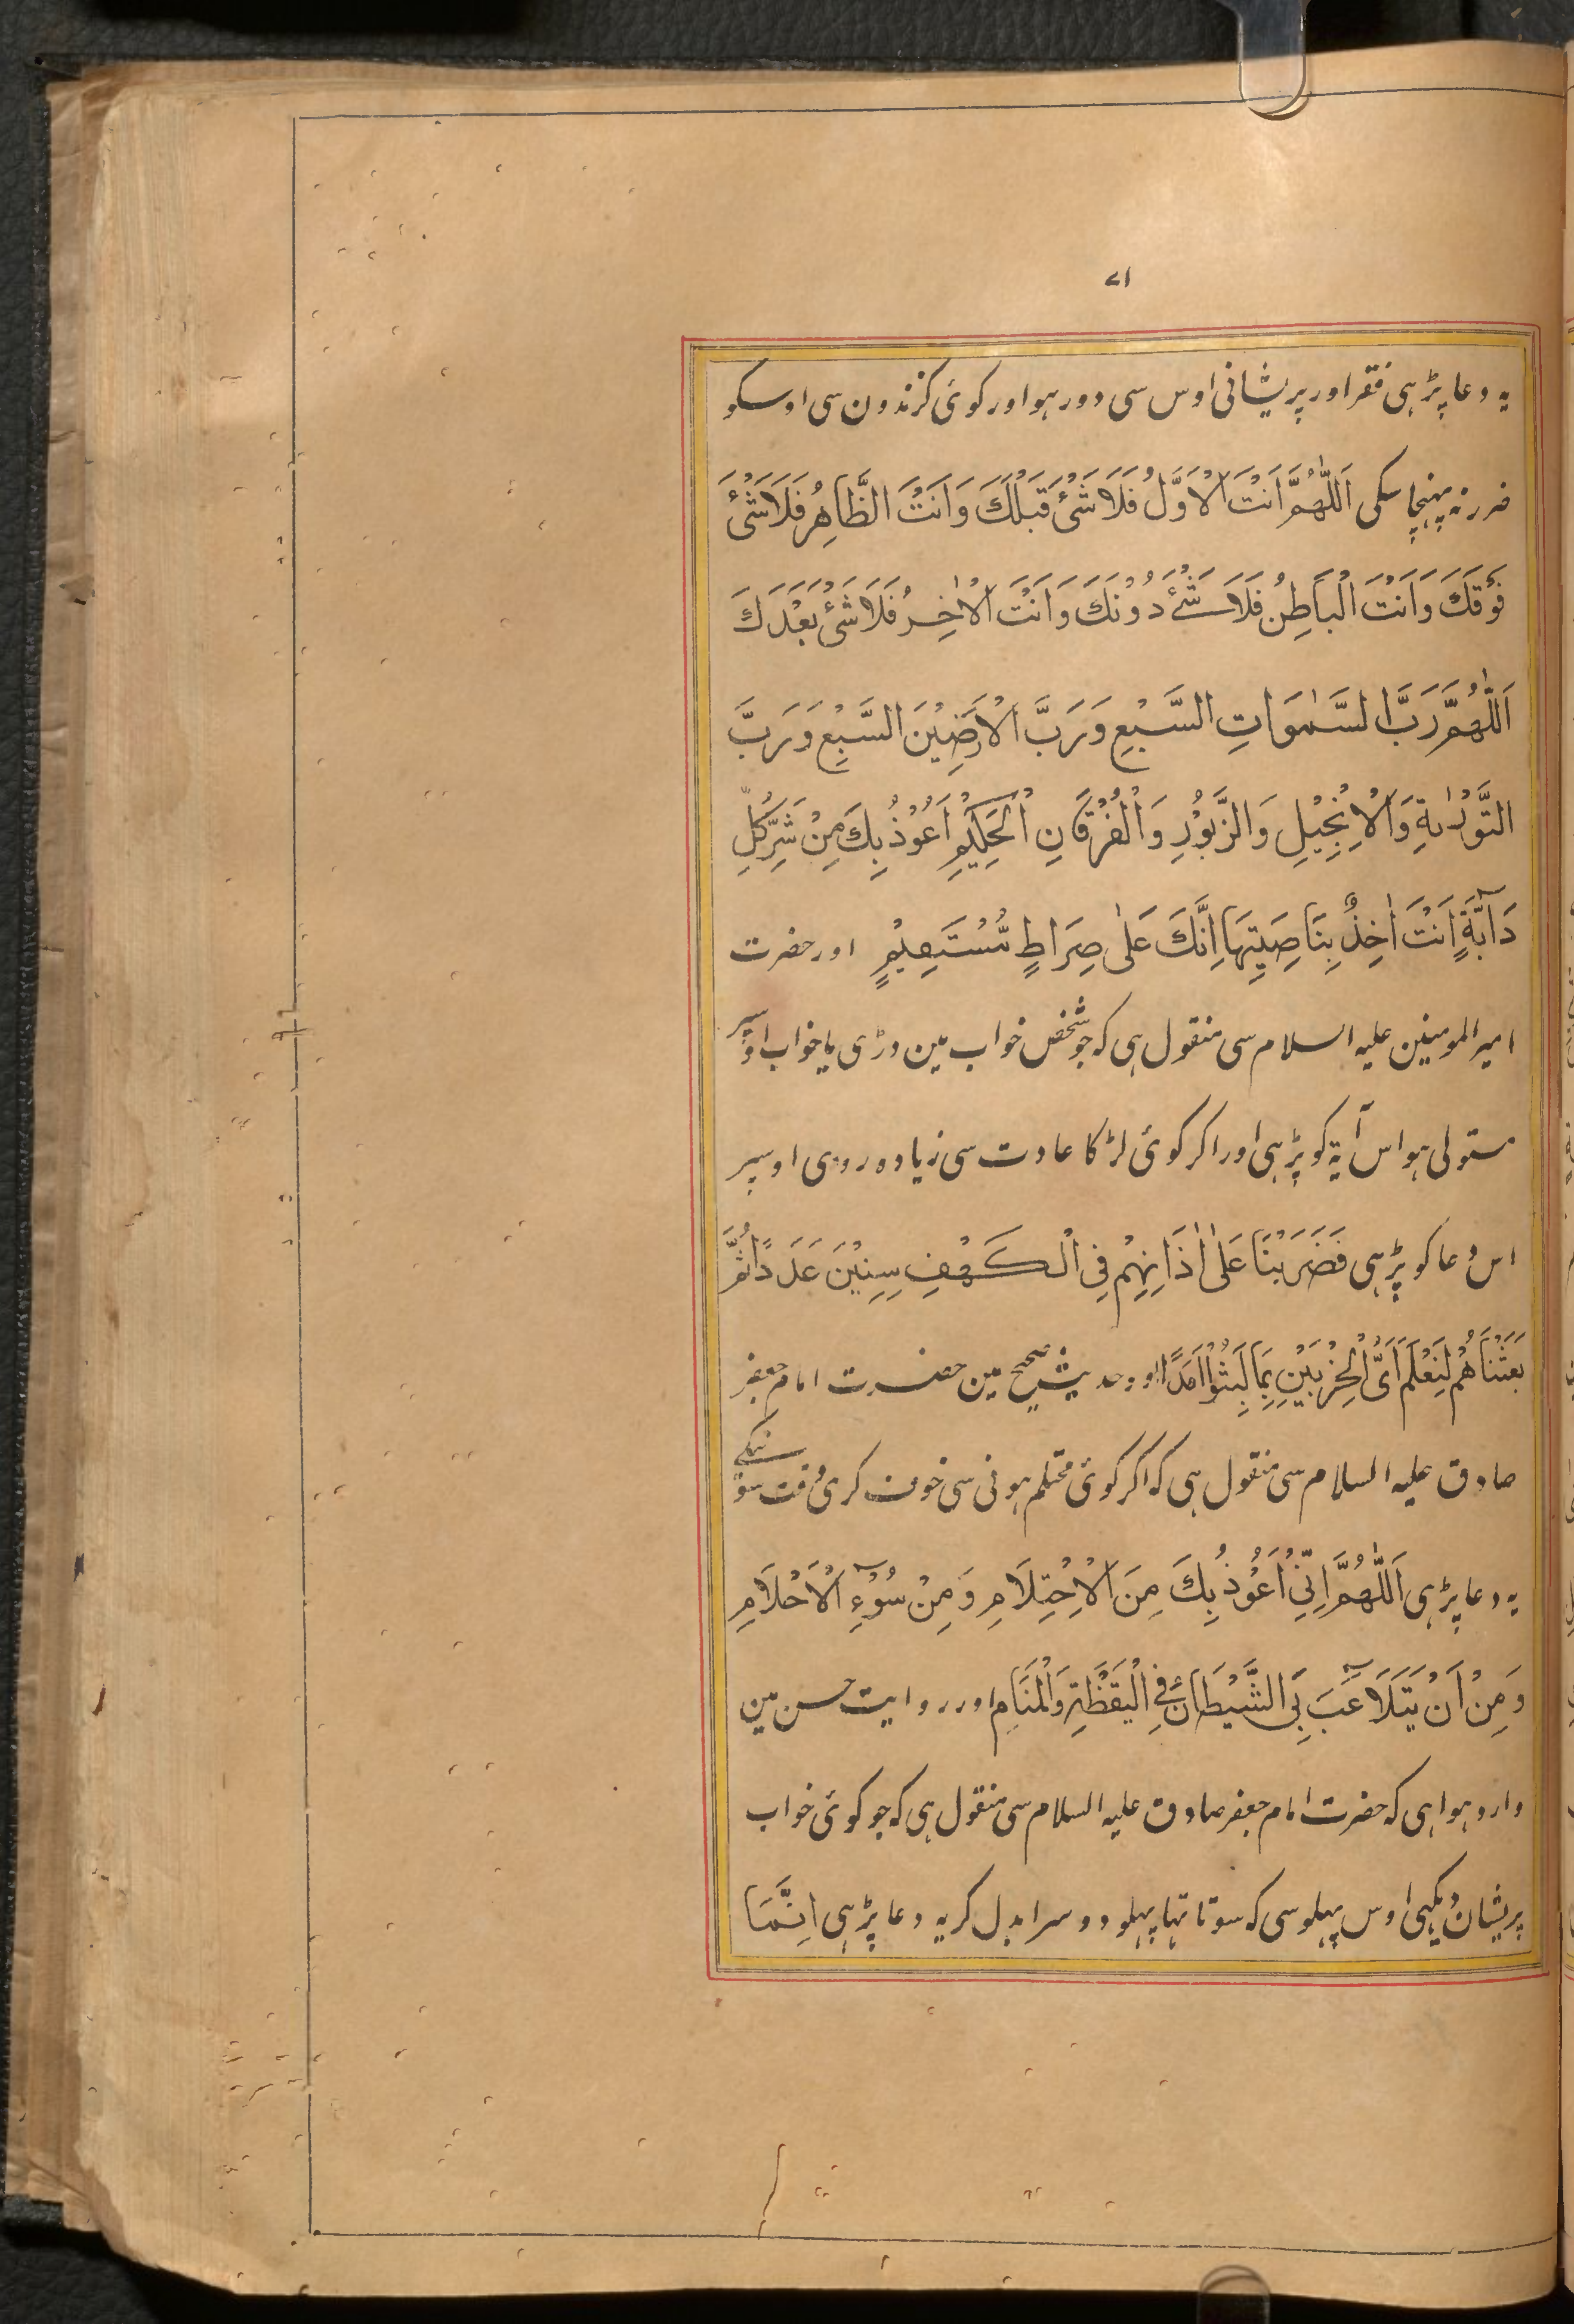 ۷۱
یہ دعا پڑہی فقر اور پریشانی اوس سی دور ہو اور کوئی کزندون سی اوسکو
ضرر نہ پہنچا سکی اَللّٰهُمَّ اَنْتَ الْاَوَّلُ فَلَا شَیْئَ قَبْلَكَ وَاَنْتَ الظَّاهِرُ فَلَا شَیْئَ
فَوْقَكَ وَاَنْتَ الْبَاطِنُ فَلَا شَیْئَ دُوْنَكَ وَاَنْتَ الْاٰخِرُ فَلَا شَیْئَ بَعْدَكَ
اَللّٰهُمَّ رَبَّ السَّمٰوَاتِ السَّبْعِ وَرَبَّ الْاَرَضِیْنَ السَّبْعِ وَرَبَّ
التَّوْرٰیةِ وَالْاِنْجِیْلِ وَالزَّبُوْرِ وَالْفُرْقَانِ الْحَكِیْمِ اَعُوْذُ بِكَ مِنْ شَرِّ كُلِّ
دَآبَّةٍ اَنْتَ اٰخِذٌ بِنَاصِیَتِهَا اِنَّكَ عَلٰی صِرَاطٍ مُّسْتَقِیْمٍ اور حضرت
امیر المومنین علیہ السلام سی منقول ہی کہ جو شخص خواب مین ڈری یا خواب اوسپر
مستولی ہو اس آیۃ کو پڑہی اور اکر کوئی لڑکا عادت سی زیادہ رودی اوسپر
اس دعا کو پڑہی فَضَرَبْنَا عَلٰی اٰذَانِهِمْ فِی الْكَهْفِ سِنِیْنَ عَدَدًا ثُمَّ
بَعَثْنَاهُمْ لِنَعْلَمَ اَیُّ الْحِزْبَیْنِ بِمَا لَبِثُوْا اَمَدًا اور حدیث صحیح مین حضرت امام جعفر
صادق علیہ السلام سی منقول ہی کہ اکر کوئی محتلم ہونی سی خوف کری وقت سونیکی
یہ دعا پڑہی اَللّٰهُمَّ اِنِّیْ اَعُوْذُ بِكَ مِنَ الْاِحْتِلَامِ وَمِنْ سُوْٓءِ الْاَحْلَامِ
وَمِنْ اَنْ یَتَلَاعَبَ بِیَ الشَّیْطَانُ فِی الْیَقَظَةِ وَالْمَنَامِ اور روایت حسن مین
وارد ہوا ہی کہ حضرت امام جعفر صادق علیہ السلام سی منقول ہی کہ جو کوئی خواب
پریشان دیکہی اوس پہلو سی کہ سوتا تہا پہلو دوسرا بدل کر یہ دعا پڑہی اِنَّمَا